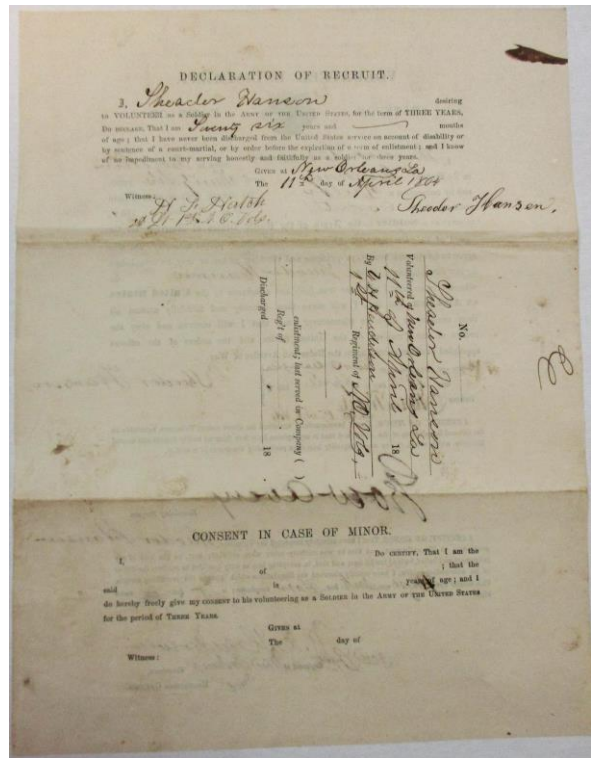 DECLARATION OF RECRUIT.
I, Sheader Hanson desiring
to VOLUNTEER as a Soldier in the ARMY OF THE UNITED STATES, for the term of THREE YEARS,
DO DECLARE, That I am Twenty six years and months
of age; that I have never been discharged from the United States service on account of disability or
by sentence of a court-martial, or by order before the expiration of a term of enlistment; and I know
of no impediment to my serving honestly and faithfully as a soldier for three years.
GIVEN at New Orleans La
The 11th day of April 1864
Witness:
Sheeder Hansen.
No.
Sheader Hanson
Volunteered at New Orleans La
11th of April 18
By
1st Regiment of N.O. Vols.
enlistment; last served in Company ( )
Reg't of
Discharged 18
C
CONSENT IN CASE OF MINOR.
I, Do CERTIFY, That I am the
of ; that the
said is years of age; and I
do hereby freely give my CONSENT to his volunteering as a SOLDIER in the ARMY OF THE UNITED STATES
for the period of THREE YEARS.
GIVEN at
The day of
Witness: